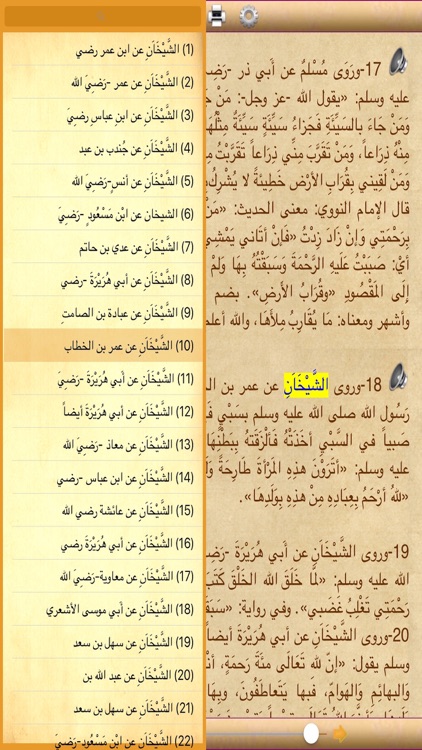 (1) الشَّيْخَاَنِ عن ابن عمر رضي
(2) الشَّيْخَاَنِ عن عمر -رَضِيَ الله
(3) الشَّيْخَاَنِ عن ابنِ عباسٍ رضِيَ
(4) الشَّيْخَاَنِ عن جُندب بن عبد
(5) الشَّيْخَاَنِ عن أنسٍ-رَضِيَ الله
(6) الشيخان عن ابْنِ مَسْعُودٍ -رَضِيَ
(7) الشَّيْخَاَنِ عن عدي بن حاتم
(8) الشَّيْخَاَنِ عن أبي هُرَيْرَةَ -رضي
(9) الشَّيْخَاَنِ عن عبادة بن الصامتِ
(10) الشَّيْخَاَنِ عن عمر بن الخطاب
(11) الشَّيْخَاَنِ عن أبي هُرَيْرَةَ -رَضِيَ
(12) الشَّيْخَاَنِ عن أبي هُرَيْرَةَ أيضاً
(13) الشَّيْخَاَنِ عن معاذ -رَضِيَ الله
(14) الشَّيْخَاَنِ عن ابن عباس -رضي
(15) الشَّيْخَاَنِ عن عائشة رضي الله
(16) الشَّيْخَاَنِ عن أبي هُرَيْرَةَ رضي
(17) الشَّيْخَاَنِ عن معاوية-رَضِيَ الله
(18) الشَّيْخَاَنِ عن أبي موسى الأشعري
(19) الشَّيْخَاَنِ عن سهل بن سعد
(20) الشَّيْخَاَنِ عن عبد الله بن
(21) الشَّيْخَاَنِ عن سهل بن سعد
(22) الشَّيْخَاَنِ عن ابْنِ مَسْعُودٍ-رَضِيَ
17-ورَوَى مُسْلمٌ عن أبي ذر -رَضِ
عليه وسلم: «يقول الله -عز وجل-: مَنْ جَ
وَمَنْ جَاءَ بالسَيِّئَةِ فَجَزاءُ سَيِّئَةٍ سَيِّئَةٌ مثْلُهَ
مِنْهُ ذِرَاعاً، وَمَنْ تَقَرَّبَ مِنِّي ذِرَاعاً تَقَرَّبْتُ مِ
وَمَنْ لَقِيني بِقُرَابِ الأرْض خَطِيئةً لا يُشْرِكُ
قال الإمام النووي: معنى الحديث: «مَنْ
بِرَحْمَتِي وَإنْ زَادَ زِدْتُ «فَإنْ أتَاني يَمْشِي
أيْ: صَبَبْتُ عَلَيهِ الرَّحْمَةَ وَسَبَقْتُهُ بِهَا وَلَمْ
إِلَى المَقْصُودِ «وقُرَابُ الأرضِ». بضم
وأشهر ومعناه: مَا يُقَارِبُ مِلأَهَا، والله أعلم
18-وروى الشَّيْخَاَنِ عن عمر بن ال
رَسُول الله صلى الله عليه وسلم بسَبْيٍ فَ
صَبياً في السَّبْيِ أخَذَتْهُ فَألْزَقَتْهُ بِبَطْنِهَا
عليه وسلم: «أتَرَوْنَ هذِهِ المَرْأةَ طَارِحَةً وَلَ
«للهُ أرْحَمُ بِعِبَادِهِ مِنْ هذِهِ بِوَلَدِهَا».
19-وروى الشَّيْخَاَنِ عن أبي هُرَيْرَةَ -رَضِ
الله عليه وسلم: «لَمَّا خَلَقَ الله الخَلْقَ كَتَبَ
رَحْمَتِي تَغْلِبُ غَضَبي». وفي رواية: «سَبَقَ
20-وروى الشَّيْخَاَنِ عن أبي هُرَيْرَةَ أيضاً
وسلم يقول: «إنَّ لله تَعَالَى مئَةَ رَحمَةٍ، أنْ
وَالبهائِمِ وَالهَوامِّ، فَبها يَتَعاطَفُونَ، وبِهَا